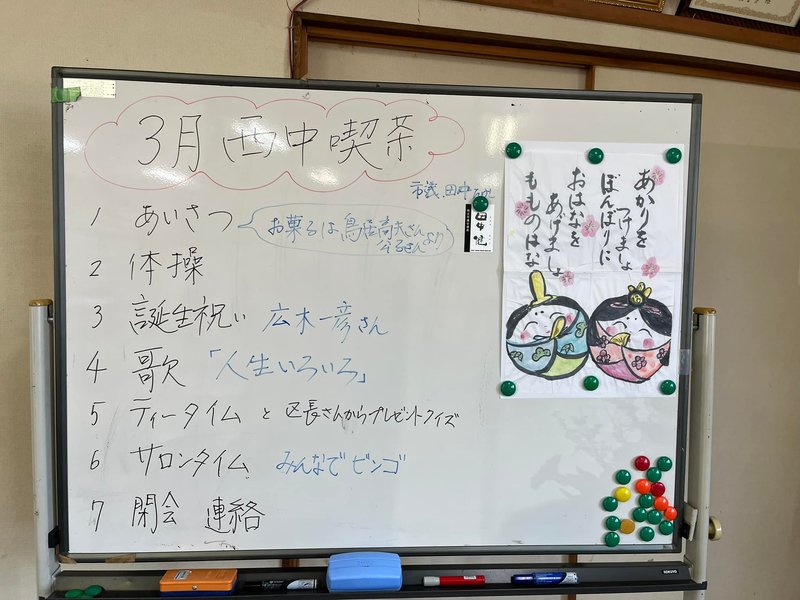 3月 西中喫茶
1 あいさつ
お菓子は鳥居
さんより
市議 田中
2 体操
3 誕生祝い 広木一彦さん
4 歌 「人生いろいろ」
5 ティータイム と 区長さんからプレゼントクイズ
6 サロンタイム みんなでビンゴ
7 閉会 連絡
あかりを
つけましょ
ぼんぼりに
おはなを
あげましょ
もものはな
KOKUYO